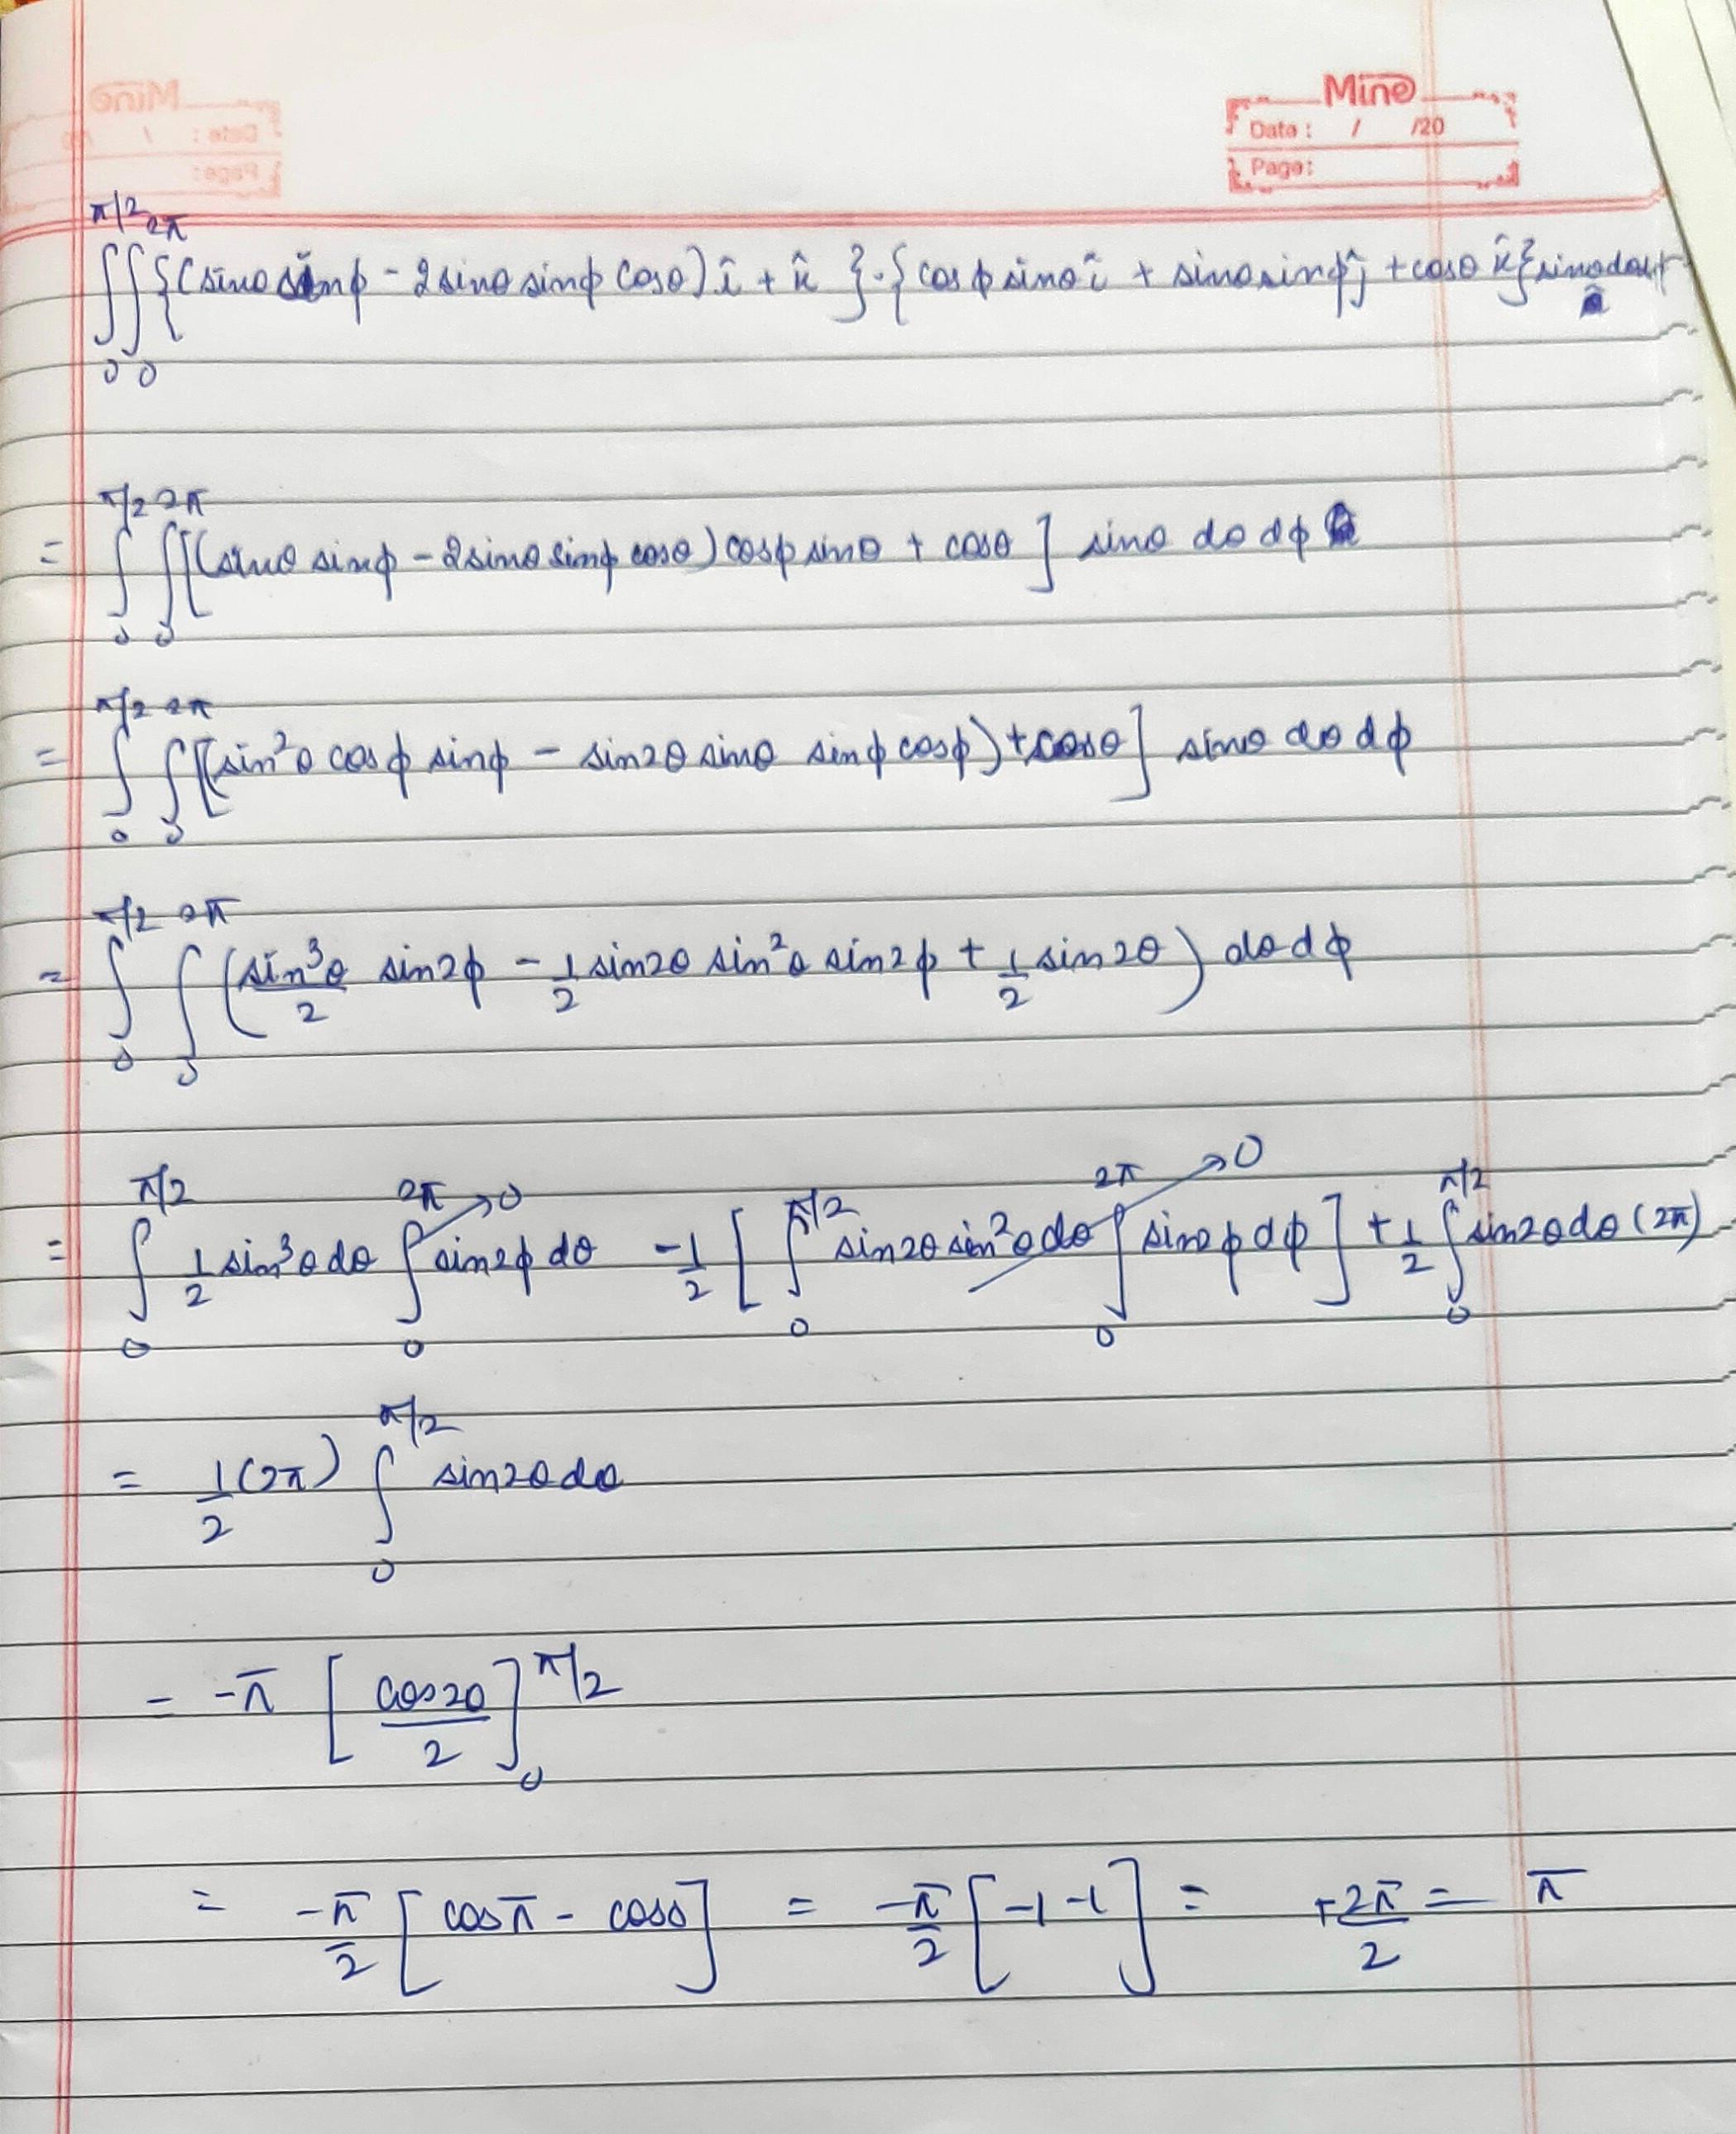 Mine
Date : / /20
Page:
π/2 2π
∫∫{(sinθ sinϕ - 2sinθ sinϕ cosθ) î + k̂ }·{cosϕ sinθ î + sinθ sinϕ ĵ + cosθ k̂} sinθ dθ dϕ
0 0
π/2 2π
= ∫ ∫[(sinθ sinϕ - 2sinθ sinϕ cosθ) cosϕ sinθ + cosθ ] sinθ dθ dϕ
0 0
π/2 2π
= ∫ ∫[(sin²θ cosϕ sinϕ - sin2θ sinθ sinϕ cosϕ) + cosθ] sinθ dθ dϕ
0 0
π/2 2π
= ∫ ∫ (sin³θ/2 sin2ϕ - 1/2 sin2θ sin²θ sin2ϕ + 1/2 sin2θ) dθ dϕ
0 0
π/2 2π → 0 π/2 2π → 0 π/2
= ∫ 1/2 sin³θ dθ ∫ sin2ϕ dθ - 1/2 [ ∫ sin2θ sin²θ dθ ∫ sin2ϕ dϕ ] + 1/2 ∫ sin2θ dθ (2π)
0 0 0 0 0
π/2
= 1/2 (2π) ∫ sin2θ dθ
0
= -π [ cos2θ/2 ]π/2
0
= -π/2 [ cosπ - cos0 ] = -π/2 [ -1 -1 ] = +2π/2 = π